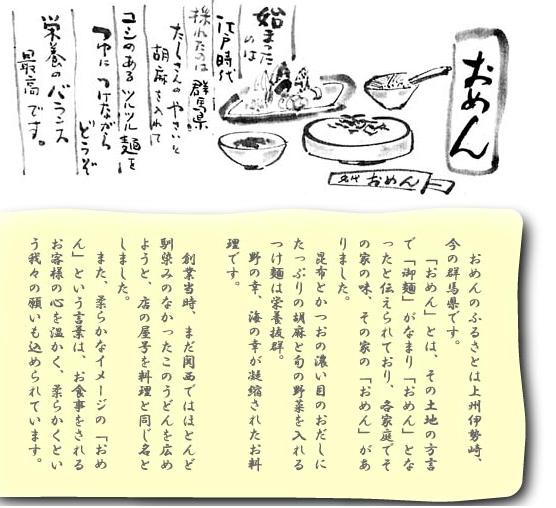 おめん
始まった
のは
江戸時代
採れたのは群馬県
たくさんのやさいと
胡麻を入れて
コシのあるツルツル麺を
つゆにつけながら
どうぞ
栄養のバランス
最高です。
名代おめん
おめんのふるさとは上州伊勢崎、
今の群馬県です。
「おめん」とは、その土地の方言
で「御麺」がなまり「おめん」とな
ったと伝えられており、各家庭でそ
の家の味、その家の「おめん」があ
りました。
昆布とかつおの濃い目のおだしに
たっぷりの胡麻と旬の野菜を入れる
つけ麺は栄養抜群。
野の幸、海の幸が凝縮されたお料
理です。
創業当時、まだ関西ではほとんど
馴染みのなかったこのうどんを広め
ようと、店の屋号を料理と同じ名と
しました。
また、柔らかなイメージの「おめ
ん」という言葉は、お食事をされる
お客様の心を温かく、柔らかくとい
う我々の願いも込められています。